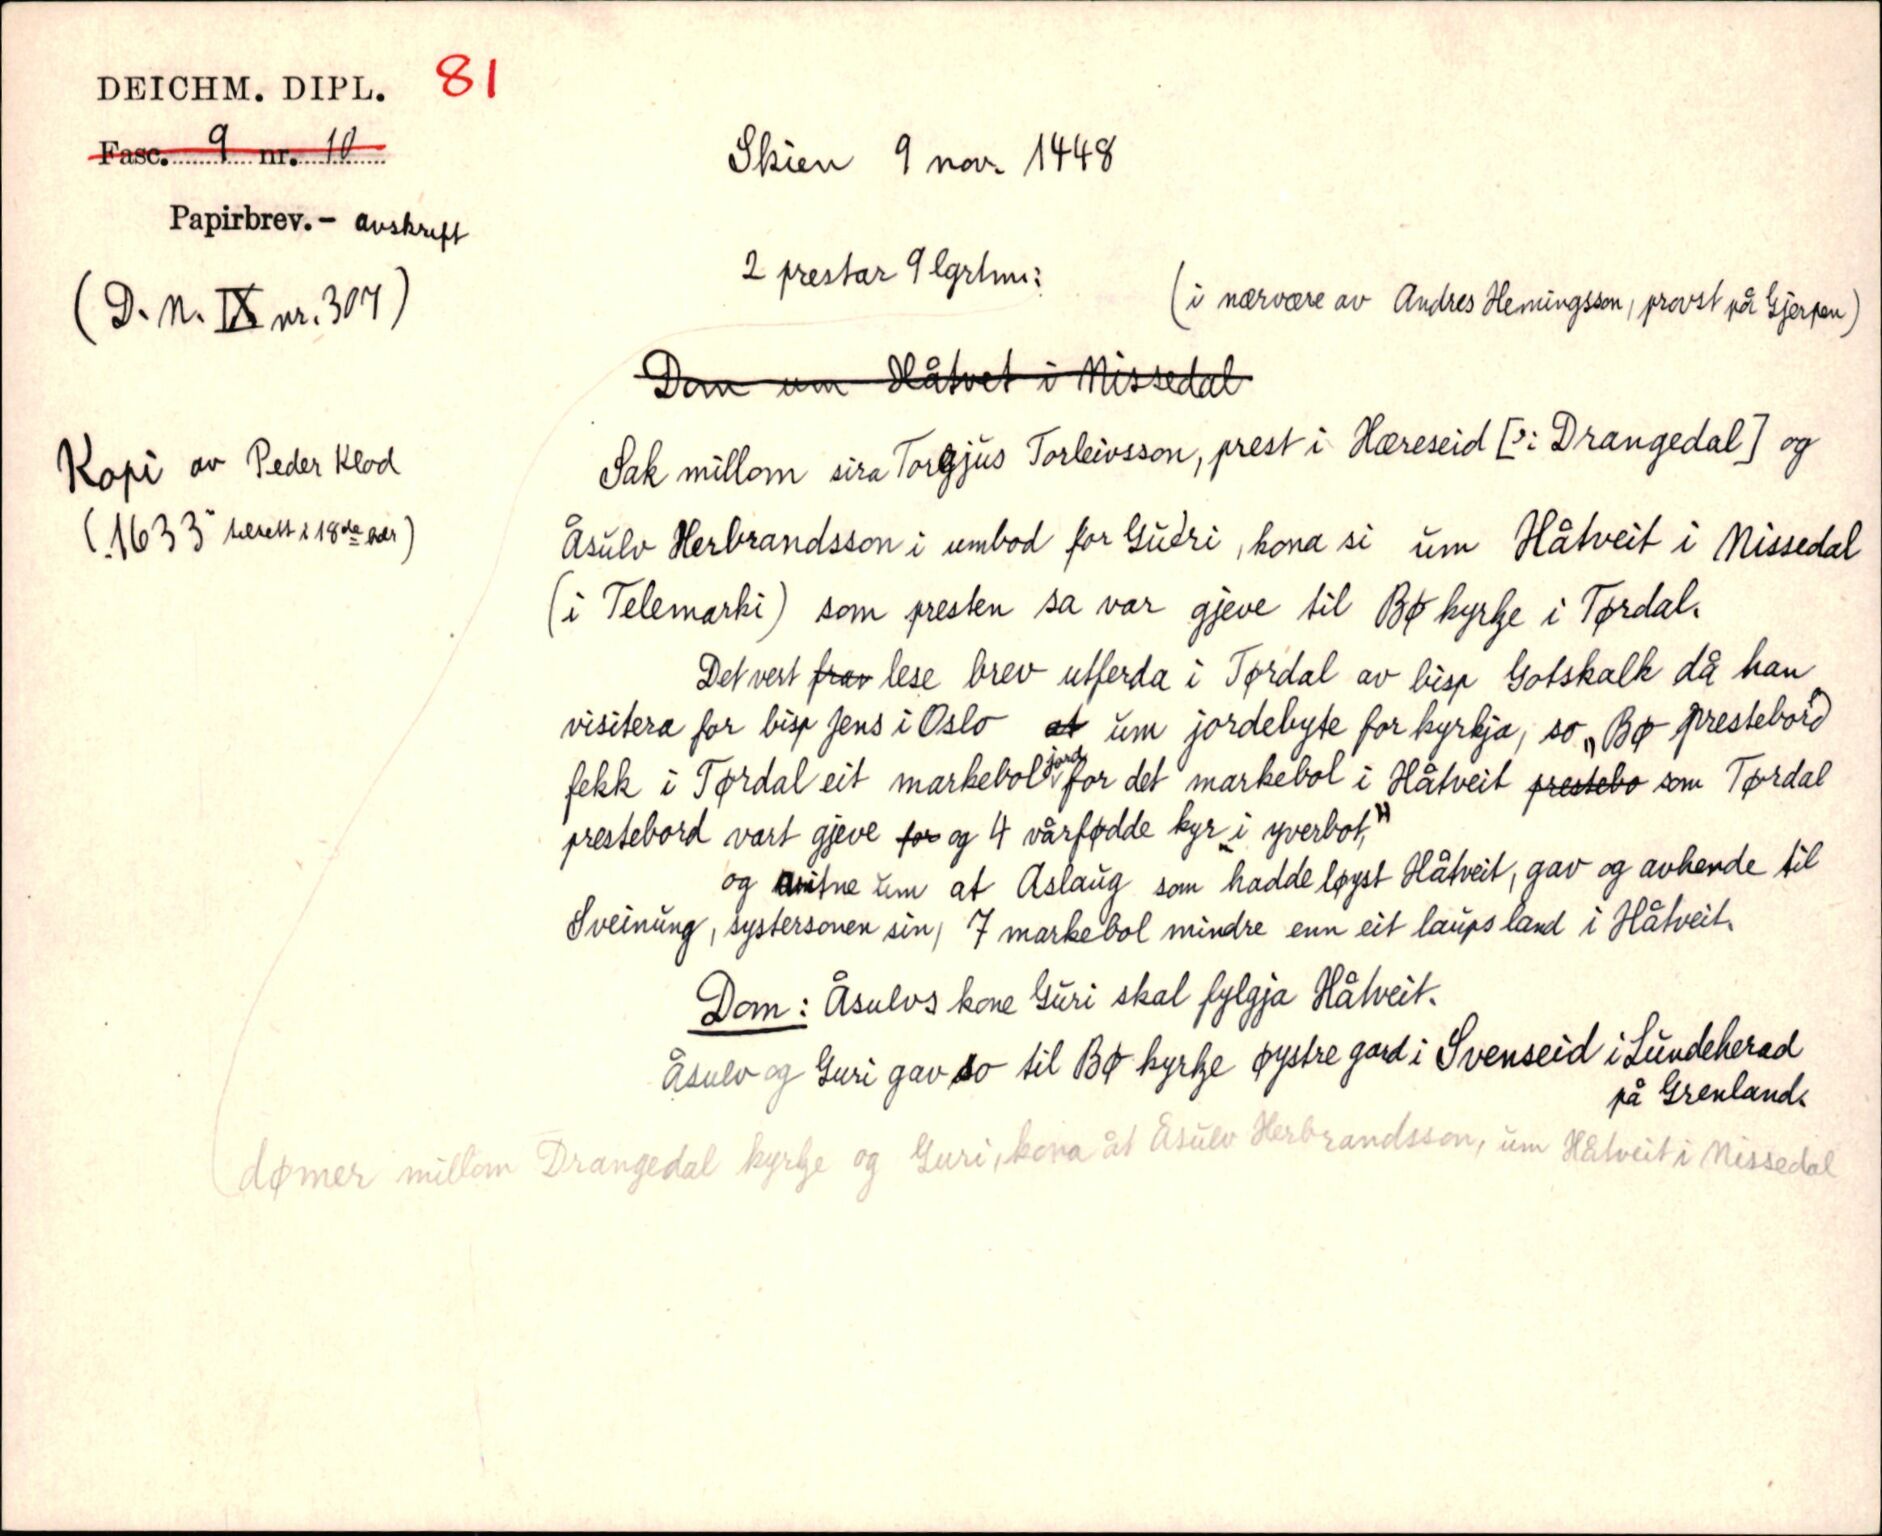 DEICHM. DIPL. 81
Fasc. 9 nr. 10
Papirbrev. - avskrift
(D. N. IX nr. 307)
Kopi av Peder Klod
(1633 i 18de)
Skien 9 nov. 1448
2 prestar 9 lgrtmn:
(i nærvære av Andres Hemingsson, provst på Gjerpen)
Dom um Håtvet i Nissedal
Sak millom sira Torgjus Torleivsson, prest i Hæreseid [ɔ: i Drangedal] og
Åsulv Herbrandsson i umbod for Gudri, kona si um Håtveit i Nissedal
(i Telemarki) som presten sa var gjeve til Bø kyrkje i Tørdal.
Det vert frav lese brev utferda i Tørdal av bisp Gotskalk då han
visitera for bisp Jens i Oslo at um jordebyte for kyrkja, so „Bø prestebord
fekk i Tørdal eit markebol jord for det markebol i Håtveit prestebo som Tørdal
prestebord vart gjeve for og 4 vårfødde kyr i yverbot,"
og vitne um at Aslaug som hadde løyst Håtveit, gav og avhende til
Sveinung, systersonen sin, 7 markebol mindre enn eit laupsland i Håtveit.
Dom: Åsulvs kone Guri skal fylgja Håtveit.
Åsulv og Guri gav so til Bø kyrkje øystre gard i Svenseid i Lundeherad
på Grenland.
dømer millom Drangedal kyrkje og Guri, kona åt Åsulv Herbrandsson, um Håtveit i Nissedal